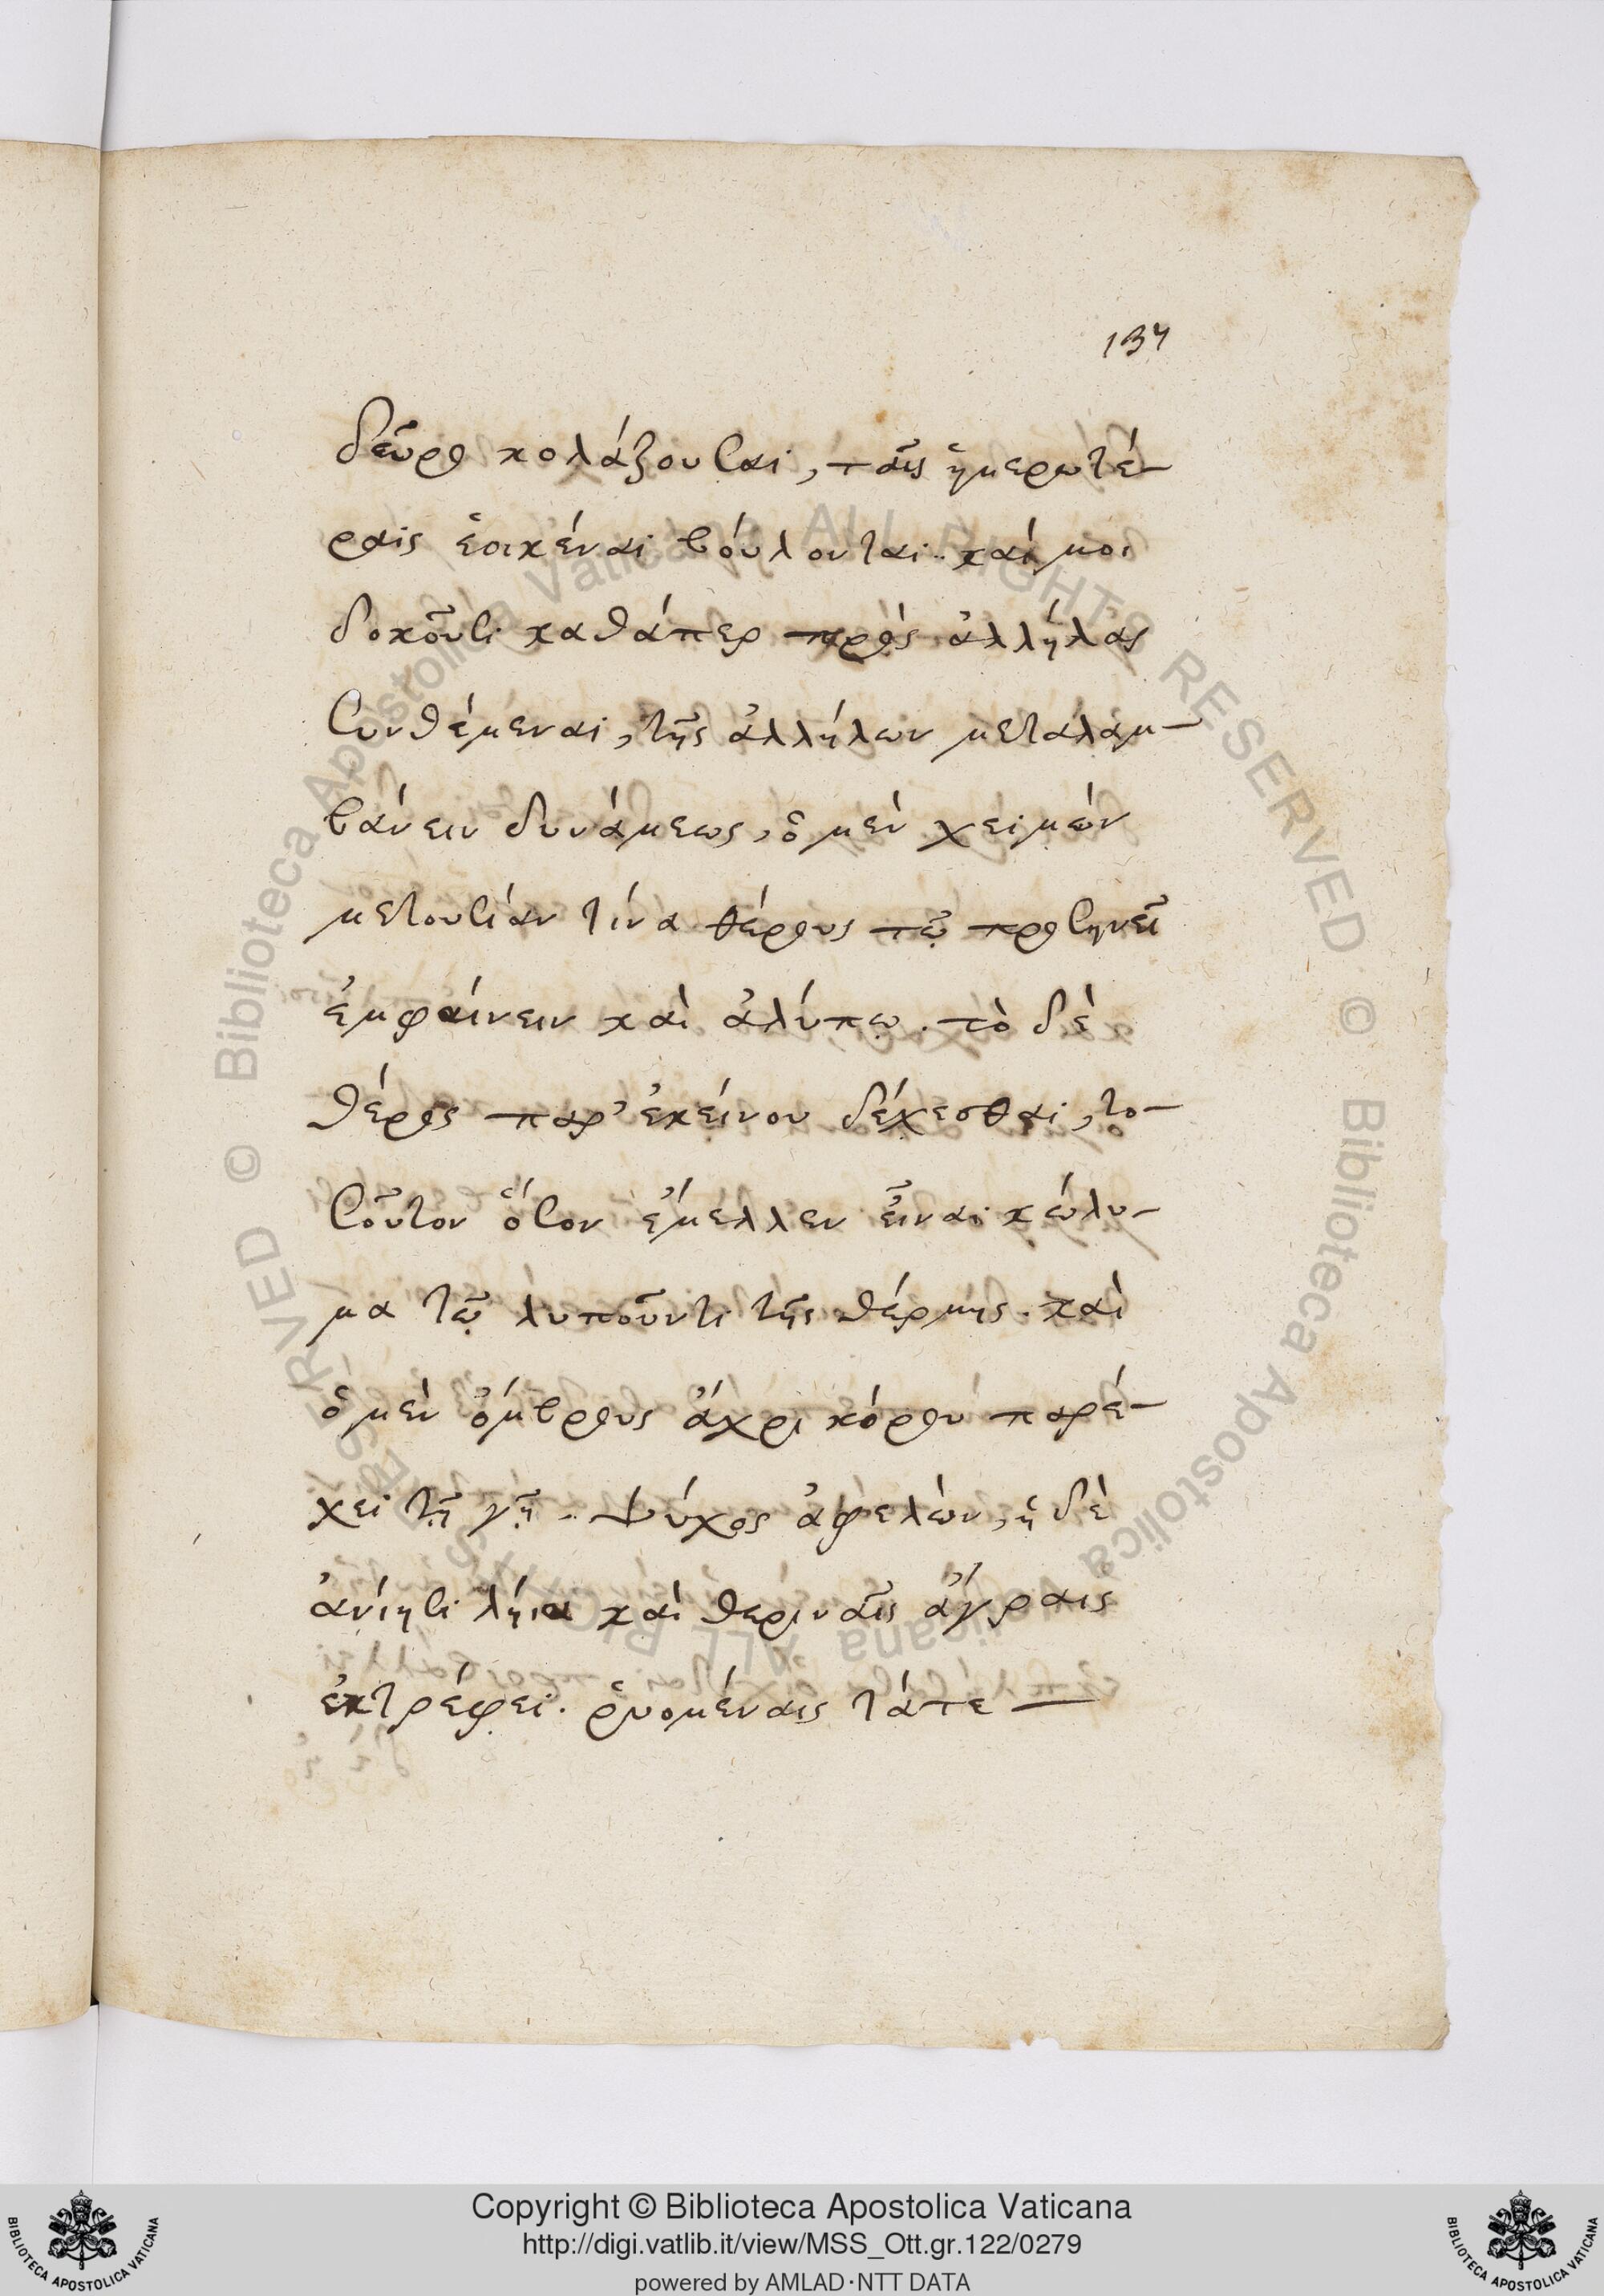 137
δεῦρο κολάζουσαι, ταῖς ἡμερωτέ-
ραις ἐοικέναι βούλονται. καί μοι
δοκοῦσι καθάπερ πρὸς ἀλλήλας
συνθέμεναι, τῆς ἀλλήλων μεταλαμ-
βάνειν δυνάμεως, ὁ μὲν χειμὼν
μετουσίαν τινα θέρους τῷ προσηνεῖ
ἐμφαίνειν καὶ ἀλύπῳ. τὸ δὲ
θέρος παρ' ἐκείνου δέχεσθαι, το-
σοῦτον ὅσον ἔμελλεν εἶναι κώλυ-
μα τῷ λυποῦντι τῆς θέρμης. καὶ
ὁ μὲν ὄμβρους ἄχρι κόρου παρέ-
χει τῇ γῇ. ψύχος ἀφελὼν, ἡ δὲ
ἀνίησι λήια καὶ θεριναῖς αὔραις
ἐκτρέφει. ῥυομέναις τάτε
Copyright © Biblioteca Apostolica Vaticana
http://digi.vatlib.it/view/MSS_Ott.gr.122/0279
powered by AMLAD·NTT DATA
BIBLIOTECA APOSTOLICA VATICANA
BIBLIOTECA APOSTOLICA VATICANA
© Biblioteca Apostolica Vaticana ALL RIGHTS RESERVED © Biblioteca Apostolica Vaticana ALL RIGHTS RESERVED